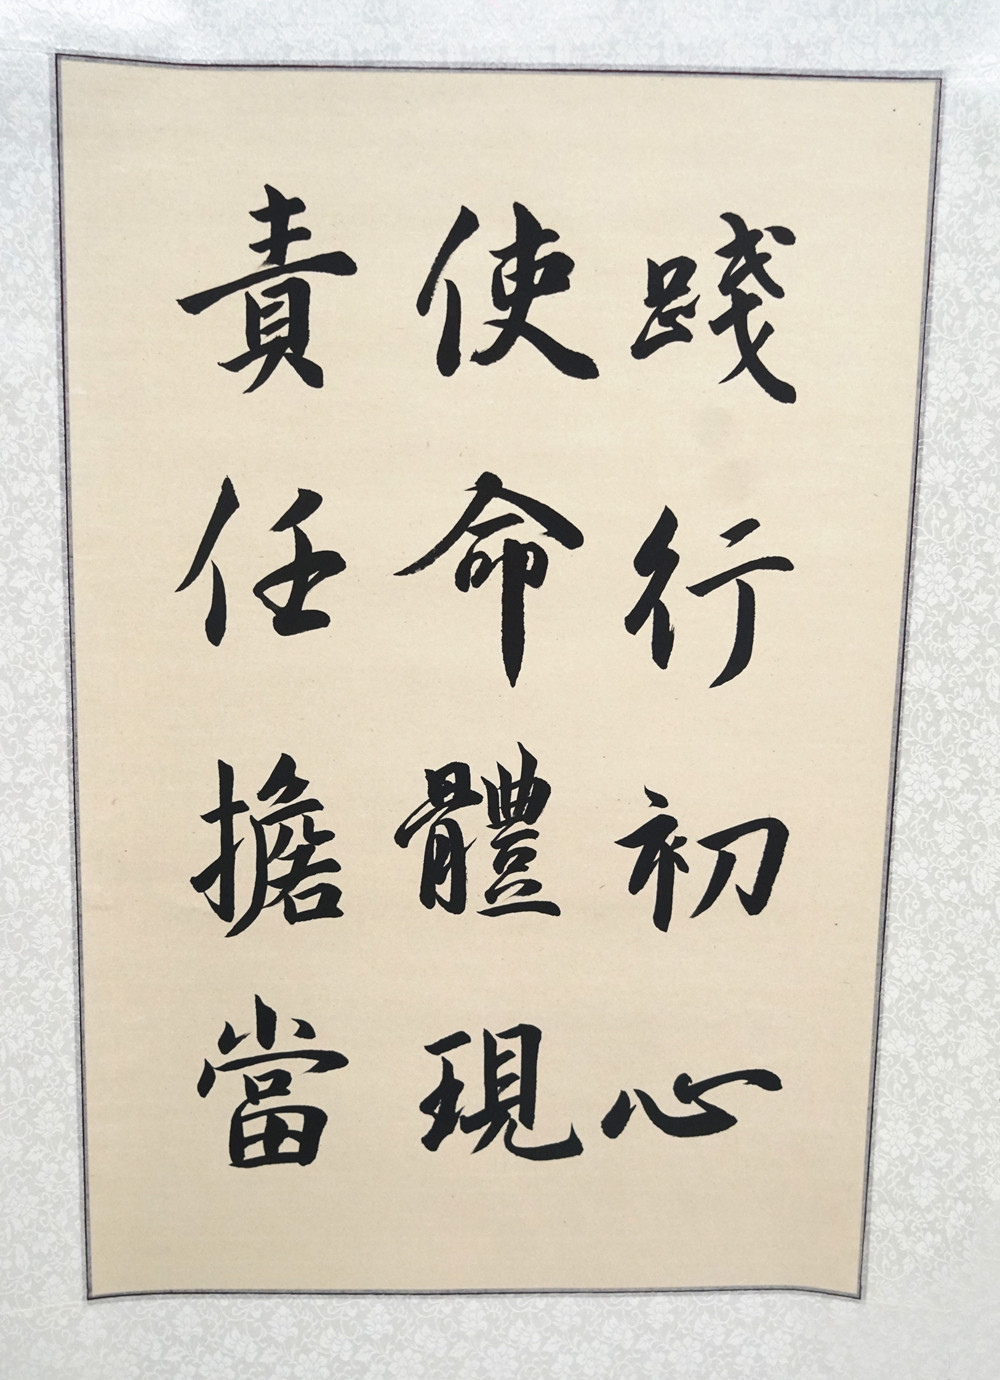 踐行初心
使命體現
責任擔當